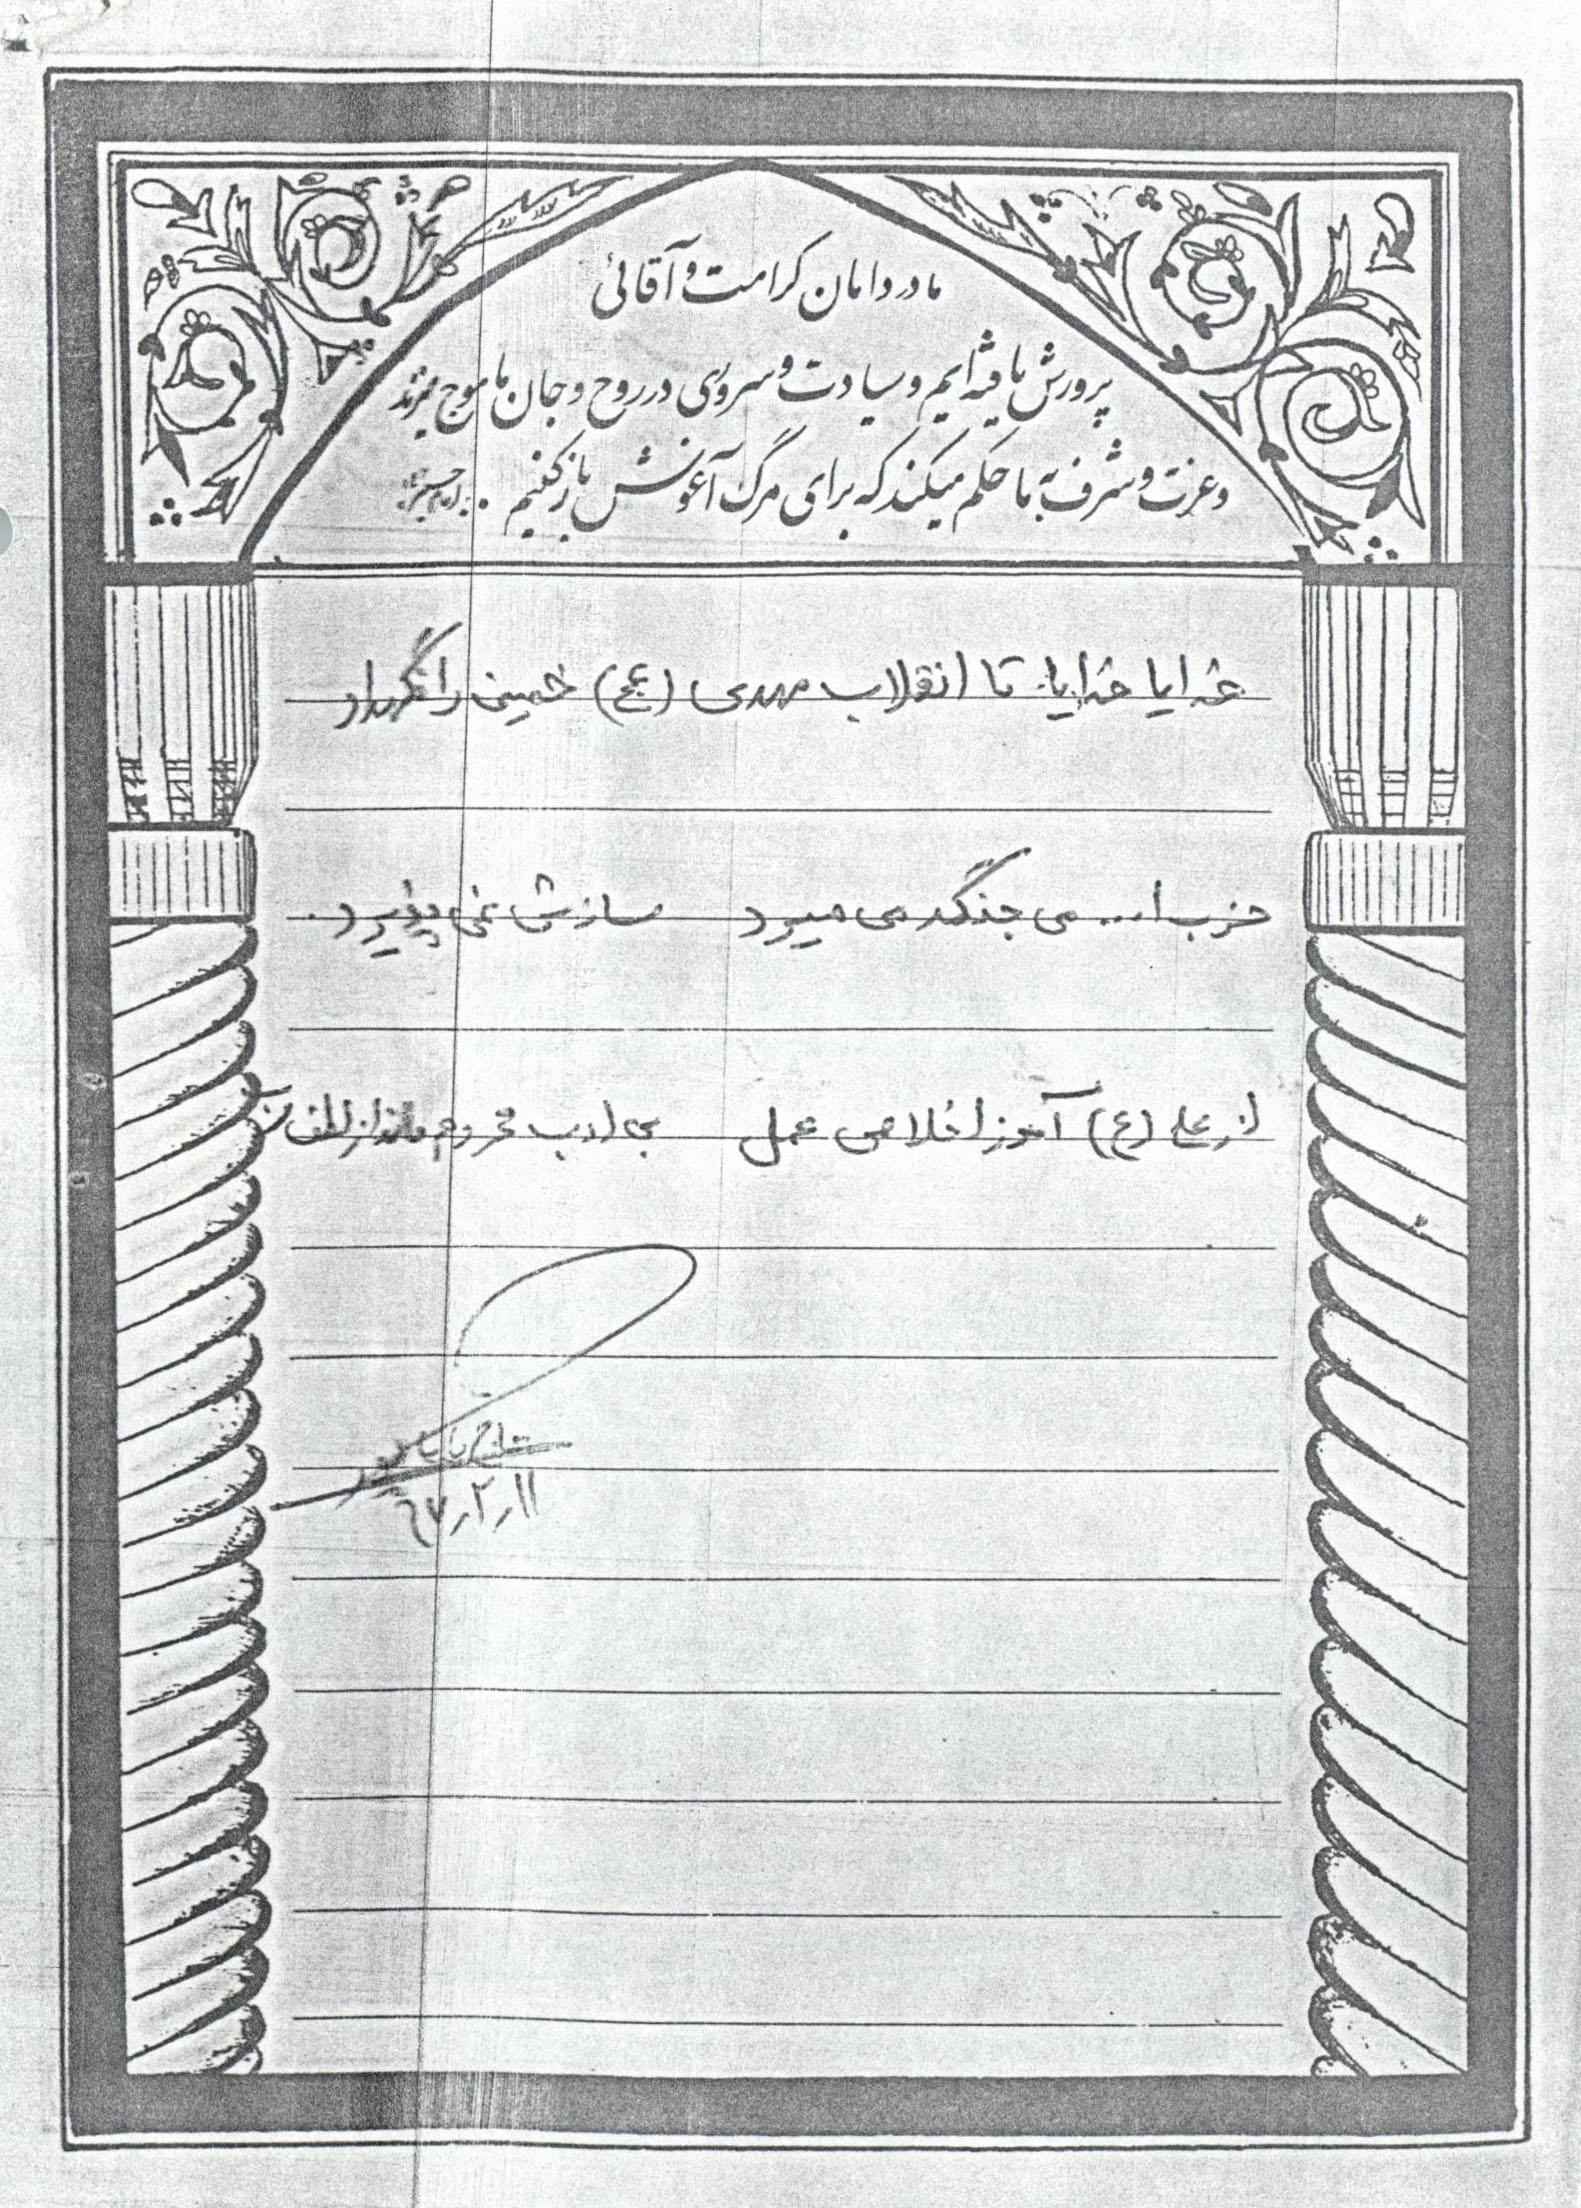 ما در دامان کرامت و آقائی
پرورش یافته‌ایم و سیادت و سروری در روح و جان ما موج میزند
و عزت و شرف به ما حکم میکند که برای مرگ آغوش باز کنیم . امام حسین
خدایا خدایا تا انقلاب مهدی (عج) خمینی را نگهدار
حزب ا... می جنگد می میرد سازش نمی پذیرد
از علی (ع) آموز اخلاص عمل بی ادب محروم ماند از لطف
۶۷٫۲٫۱۱